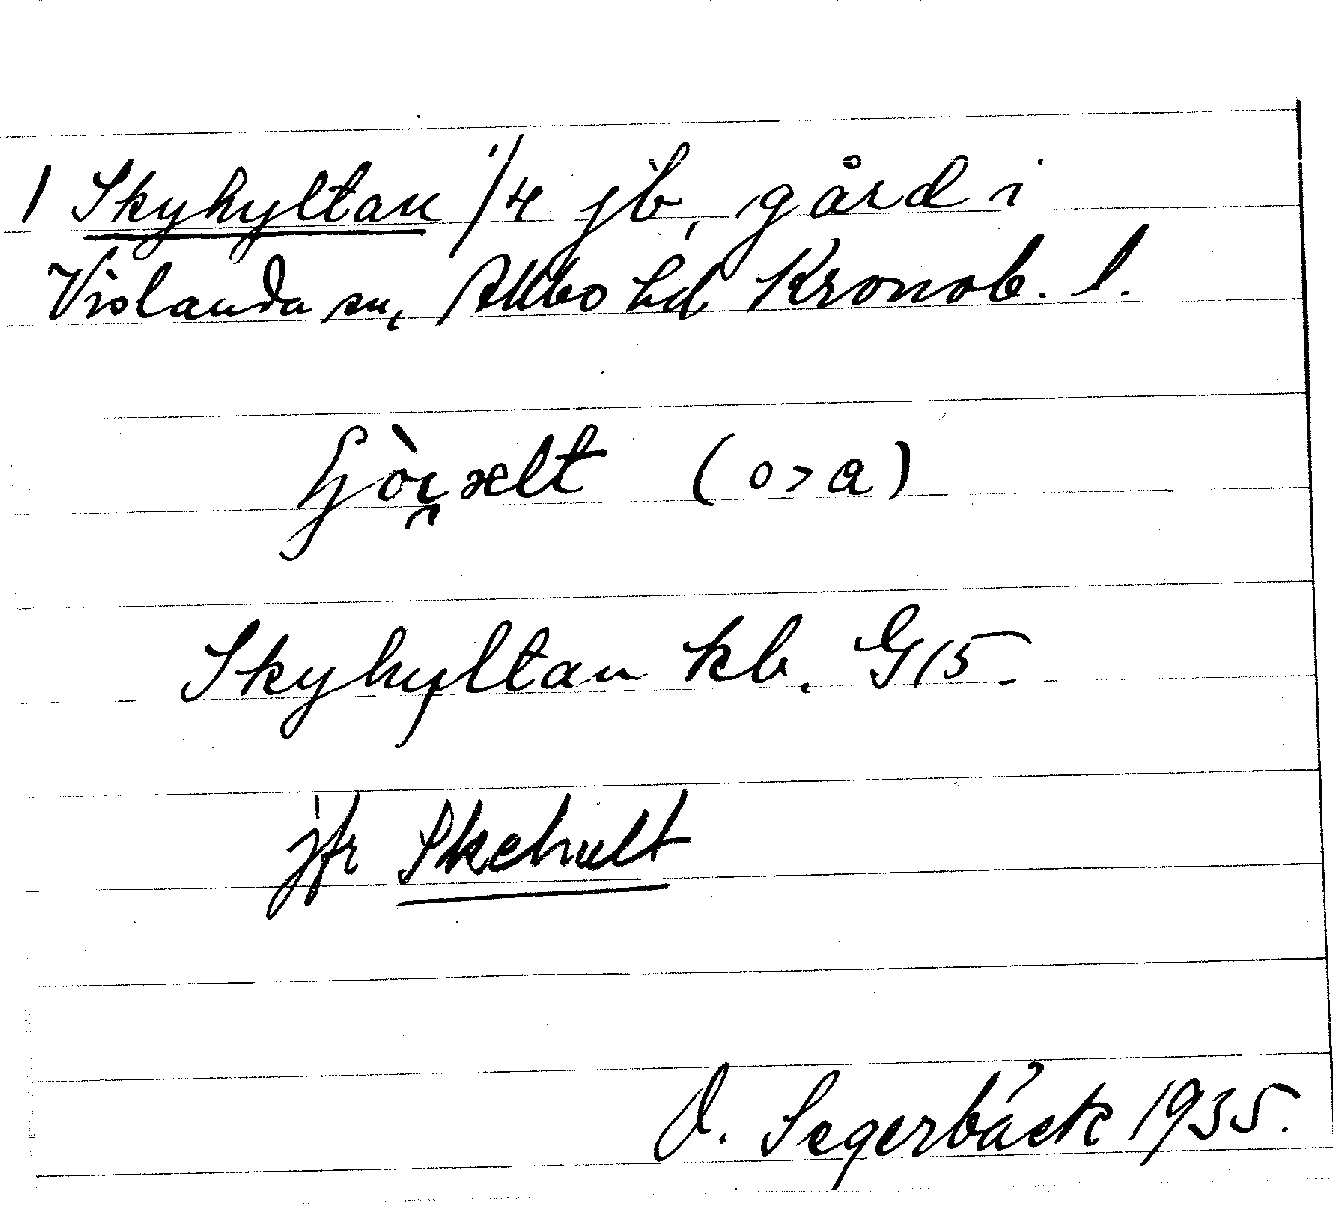 1 Skyhyltan 1/4 jb, gård i
Vislanda sn, Allbo hd Kronob. l.
(o > a)
Skyhyltan kb. G15.
jfr Skehult
O. Segerbäck 1935.